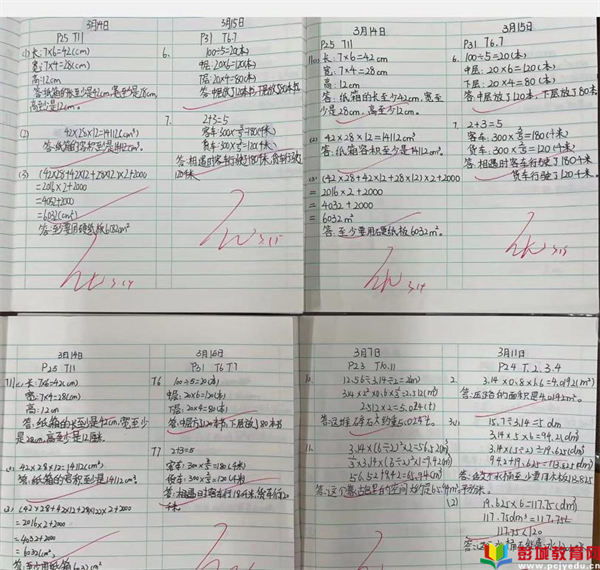 3月14日
P25 T11
(1) 长: 7×6=42(cm)
宽: 7×4=28(cm)
高: 12cm
答: 纸箱的长至少是42cm, 宽至少是28cm,
高至少是12cm。
(2) 42×28×12=14112(cm³)
答: 纸箱的容积至少是14112cm³。
(3) (42×28+42×12+28×12)×2+2000
=2016×2+2000
=4032+2000
=6032(cm²)
答: 至少要用硬纸板6032cm²。
3.14
3月15日
P31 T6.7
6. 100÷5=20(本)
中层: 20×6=120(本)
下层: 20×4=80(本)
答: 中层放了120本书, 下层放了80本书
7. 2+3=5
客车: 300×3/5=180(千米)
货车: 300×2/5=120(千米)
答: 相遇时客车行驶了180千米, 货车行驶了
120千米
3.15
3月14日
P25 T11
(1) 长: 7×6=42cm
宽: 7×4=28cm
高: 12cm
答: 纸箱的长至少42cm, 宽至
少是28cm, 高至少12cm。
(2) 42×28×12=14112cm³
答: 纸箱容积至少是14112cm³。
(3) (42×28+42×12+28×12)×2+2000
=2016×2+2000
=4032+2000
=6032m²
答: 至少要用硬纸板6032m²。
3.14
3月15日
P31 T6.7
6. 100÷5=20(本)
中层: 20×6=120(本)
下层: 20×4=80(本)
答: 中层放了120本, 下层放了80本
7. 2+3=5
客车: 300×3/5=180(千米)
货车: 300×2/5=120(千米)
答: 相遇时客车行驶了180千米
货车行驶了120千米。
3.15
3月14日
P25 T11
T11(1) 长: 7×6=42(cm)
宽: 7×4=28(cm)
高: 12cm
答: 纸箱的长至少是42cm, 宽至少
是28cm, 高至少是12厘米。
(2) 42×28×12=14112(cm³)
答: 纸箱的容积至少是14112cm³。
(3) (42×28+42×12+28×12)×2+2000
=2016×2+2000
=4032+2000
=6032(cm²)
3月15日
P31 T6 T7
T6 100÷5=20(本)
中层: 20×6=120(本)
下层: 20×4=80(本)
答: 中层放了120本书, 下层放了80本书
T7 2+3=5
客车: 300×3/5=180(千米)
货车: 300×2/5=120(千米)
3月7日
P23 T10.11
10. 12.56÷3.14÷2=2(m)
11. 3.14×(6÷2)²×2=56.52(m³)
56.52+9.42=65.94(m³)
3月11日
P24 T.2.3.4
2. 3.14×0.8×1.6=4.0192(m²)
3(1) 15.7÷3.14=5 dm
(2) 19.625×6=117.75(dm³)
117.75dm³=117.75L
117.75<120
彭城教育网
www.pcjyedu.cn